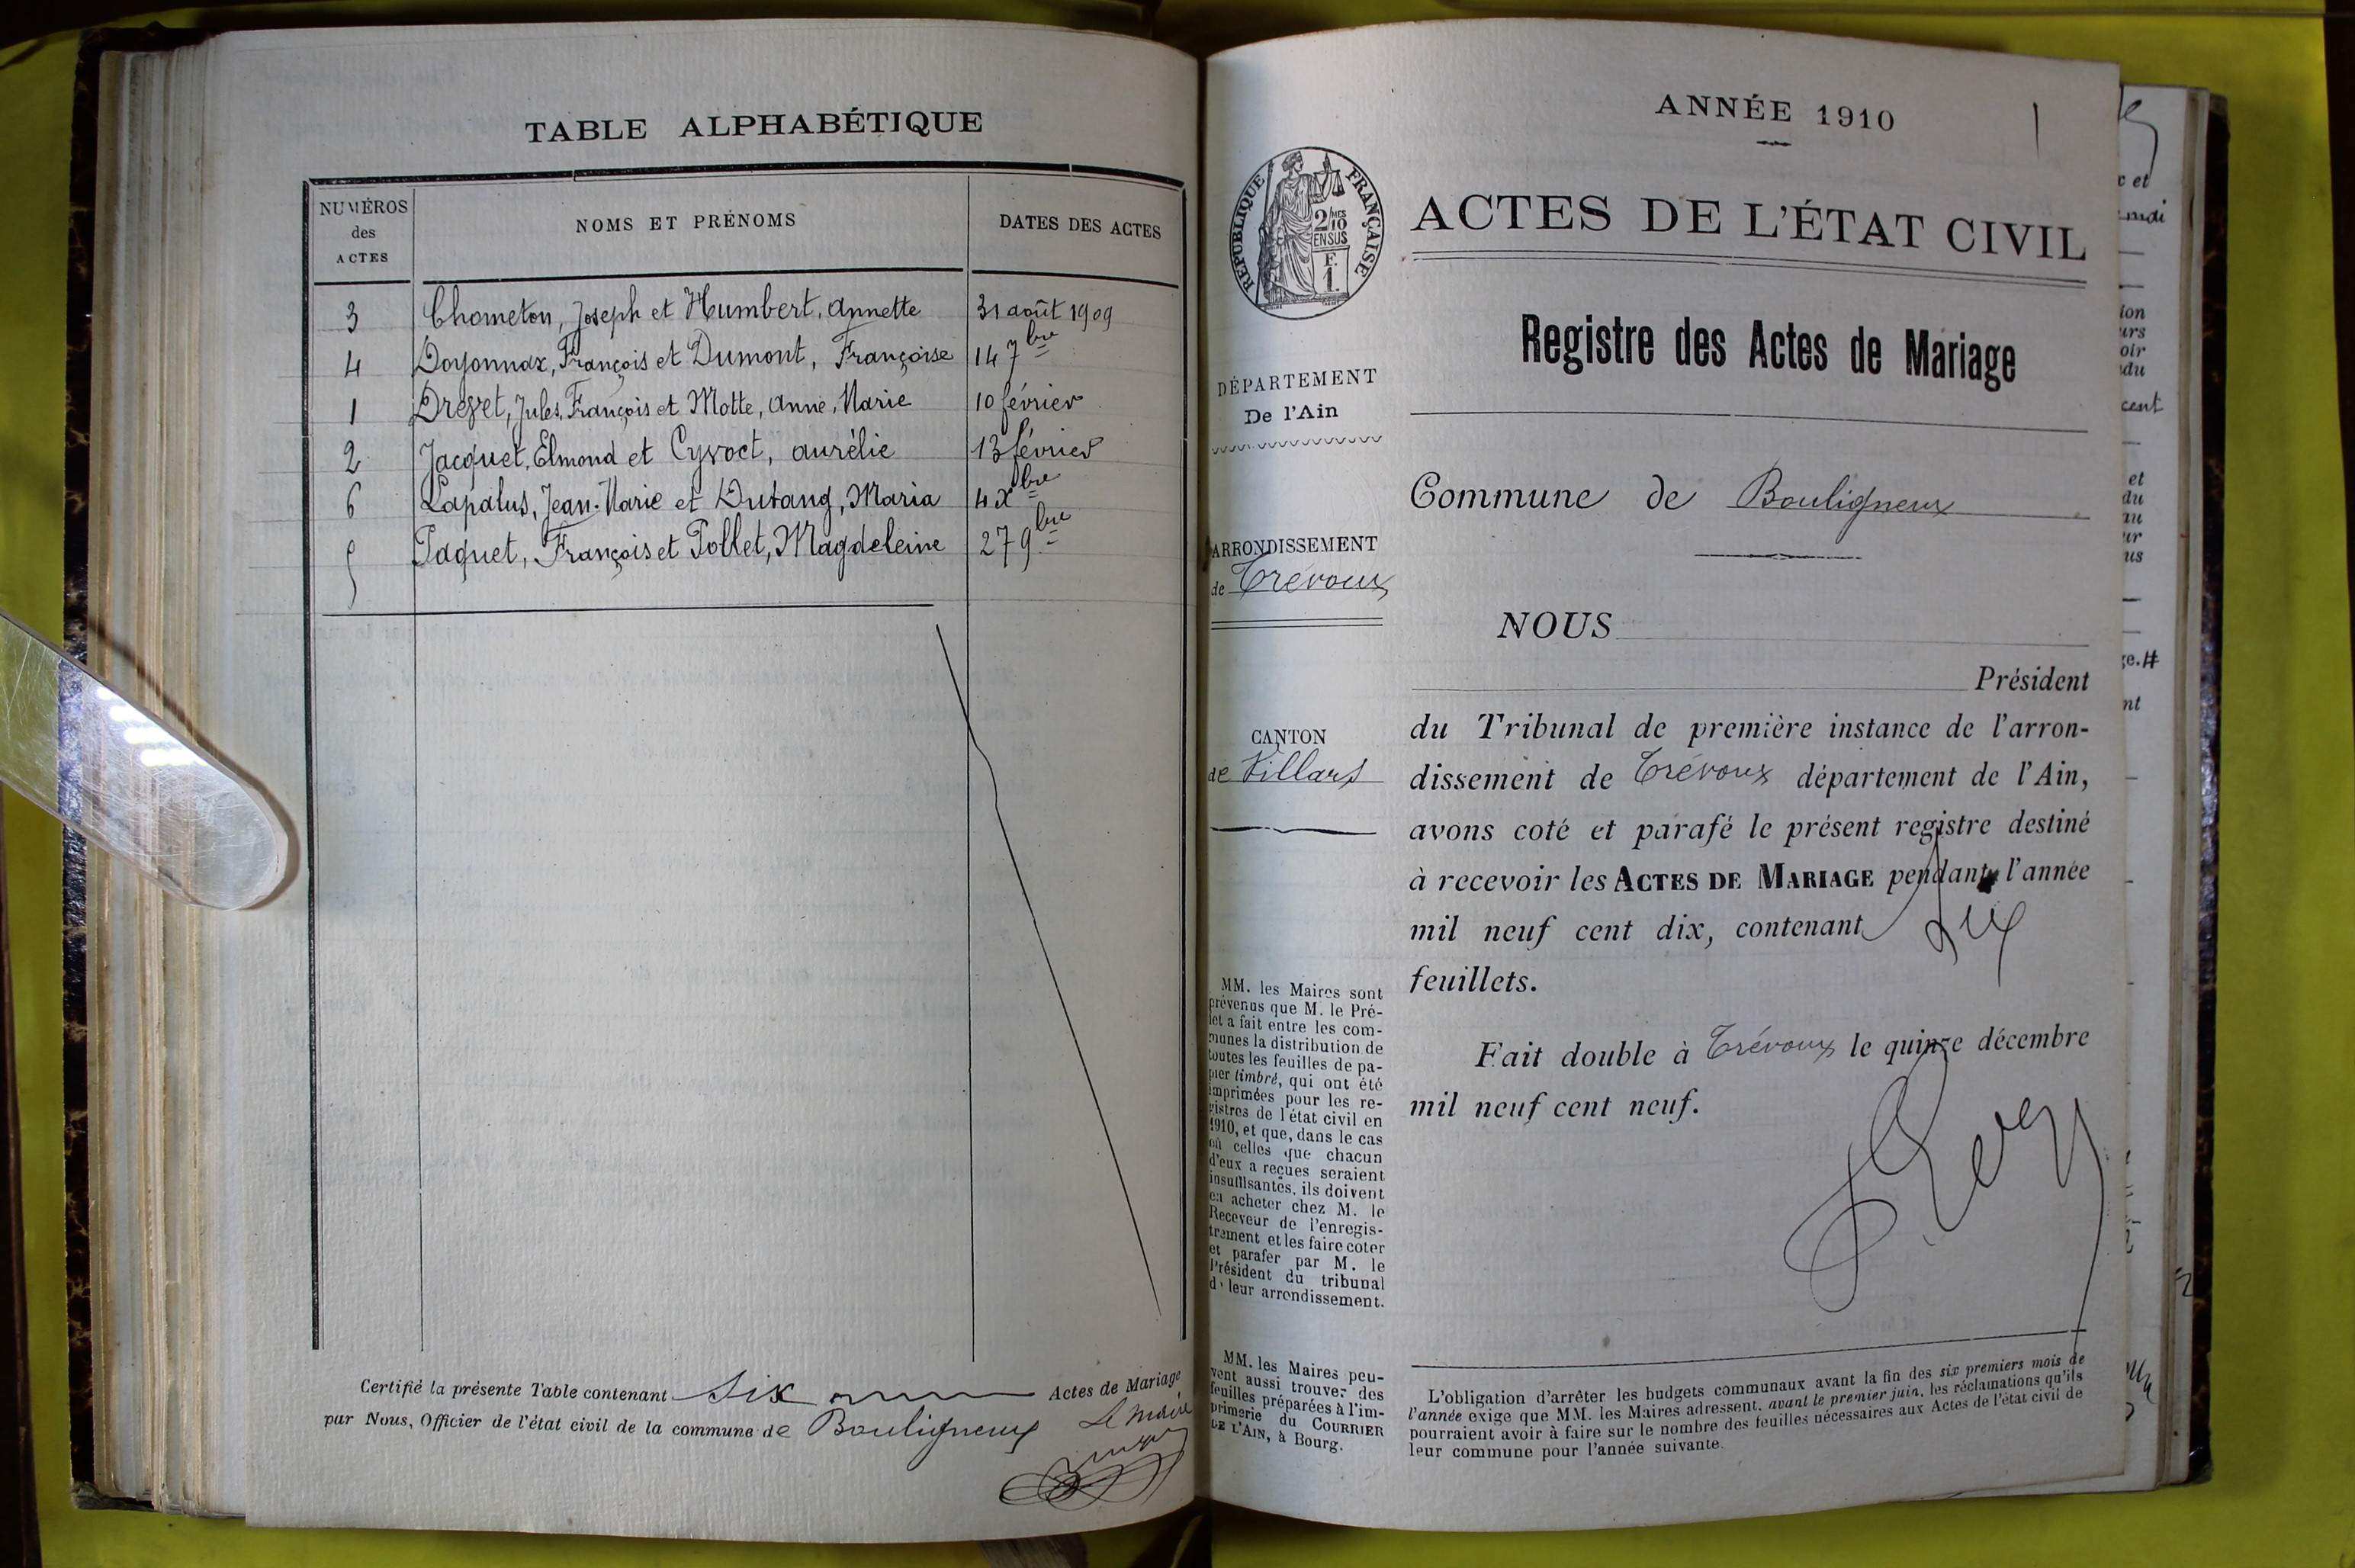 TABLE ALPHABÉTIQUE
NUMÉROS
des
ACTES
NOMS ET PRÉNOMS
DATES DES ACTES
3 Chometon, Joseph et Humbert, Annette 31 août 1909
4 Doyonnax, François et Dumont, Françoise 14 7bre
1 Drevet, Jules, François et Motte, Anne, Marie 10 février
2 Jacquet, Elmond et Cyvoct, aurélie 13 février
6 Lapalus, Jean-Marie et Dutang, Maria 4 Xbre
5 Paquet, François et Pollet, Magdeleine 27 9bre
Certifié la présente Table contenant Six Actes de Mariage
par Nous, Officier de l'état civil de la commune de Bouligneux Le maire
ANNÉE 1910
1
RÉPUBLIQUE FRANÇAISE
2/10
MES
EN SUS
F.
1.
ACTES DE L'ÉTAT CIVIL
Registre des Actes de Mariage
DÉPARTEMENT
De l'Ain
Commune de Bouligneux
ARRONDISSEMENT
de Trévoux
CANTON
de Villars
NOUS
Président
du Tribunal de première instance de l'arron-
dissement de Trévoux département de l'Ain,
avons coté et parafé le présent registre destiné
à recevoir les ACTES DE MARIAGE pendant l'année
mil neuf cent dix, contenant six
feuillets.
Fait double à Trévoux le quinze décembre
mil neuf cent neuf.
MM. les Maires sont
prévenus que M. le Pré-
fet a fait entre les com-
munes la distribution de
toutes les feuilles de pa-
pier timbré, qui ont été
imprimées pour les re-
gistres de l'état civil en
1910, et que, dans le cas
où celles que chacun
d'eux a reçues seraient
insuffisantes, ils doivent
en acheter chez M. le
Receveur de l'enregis-
trement et les faire coter
et parafer par M. le
Président du tribunal
d' leur arrondissement.
MM. les Maires peu-
vent aussi trouver des
feuilles préparées à l'im-
primerie du COURRIER
DE L'AIN, à Bourg.
L'obligation d'arrêter les budgets communaux avant la fin des six premiers mois de
l'année exige que MM. les Maires adressent, avant le premier juin, les réclamations qu'ils
pourraient avoir à faire sur le nombre des feuilles nécessaires aux Actes de l'état civil de
leur commune pour l'année suivante.